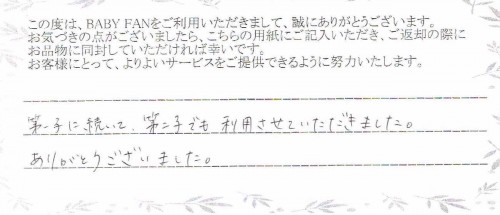 この度は、BABY FANをご利用いただきまして、誠にありがとうございます。
お気づきの点がございましたら、こちらの用紙にご記入いただき、ご返却の際に
お品物に同封していただければ幸いです。
お客様にとって、よりよいサービスをご提供できるように努力いたします。
第一子に続いて、第二子でも利用させていただきました。
ありがとうございました。